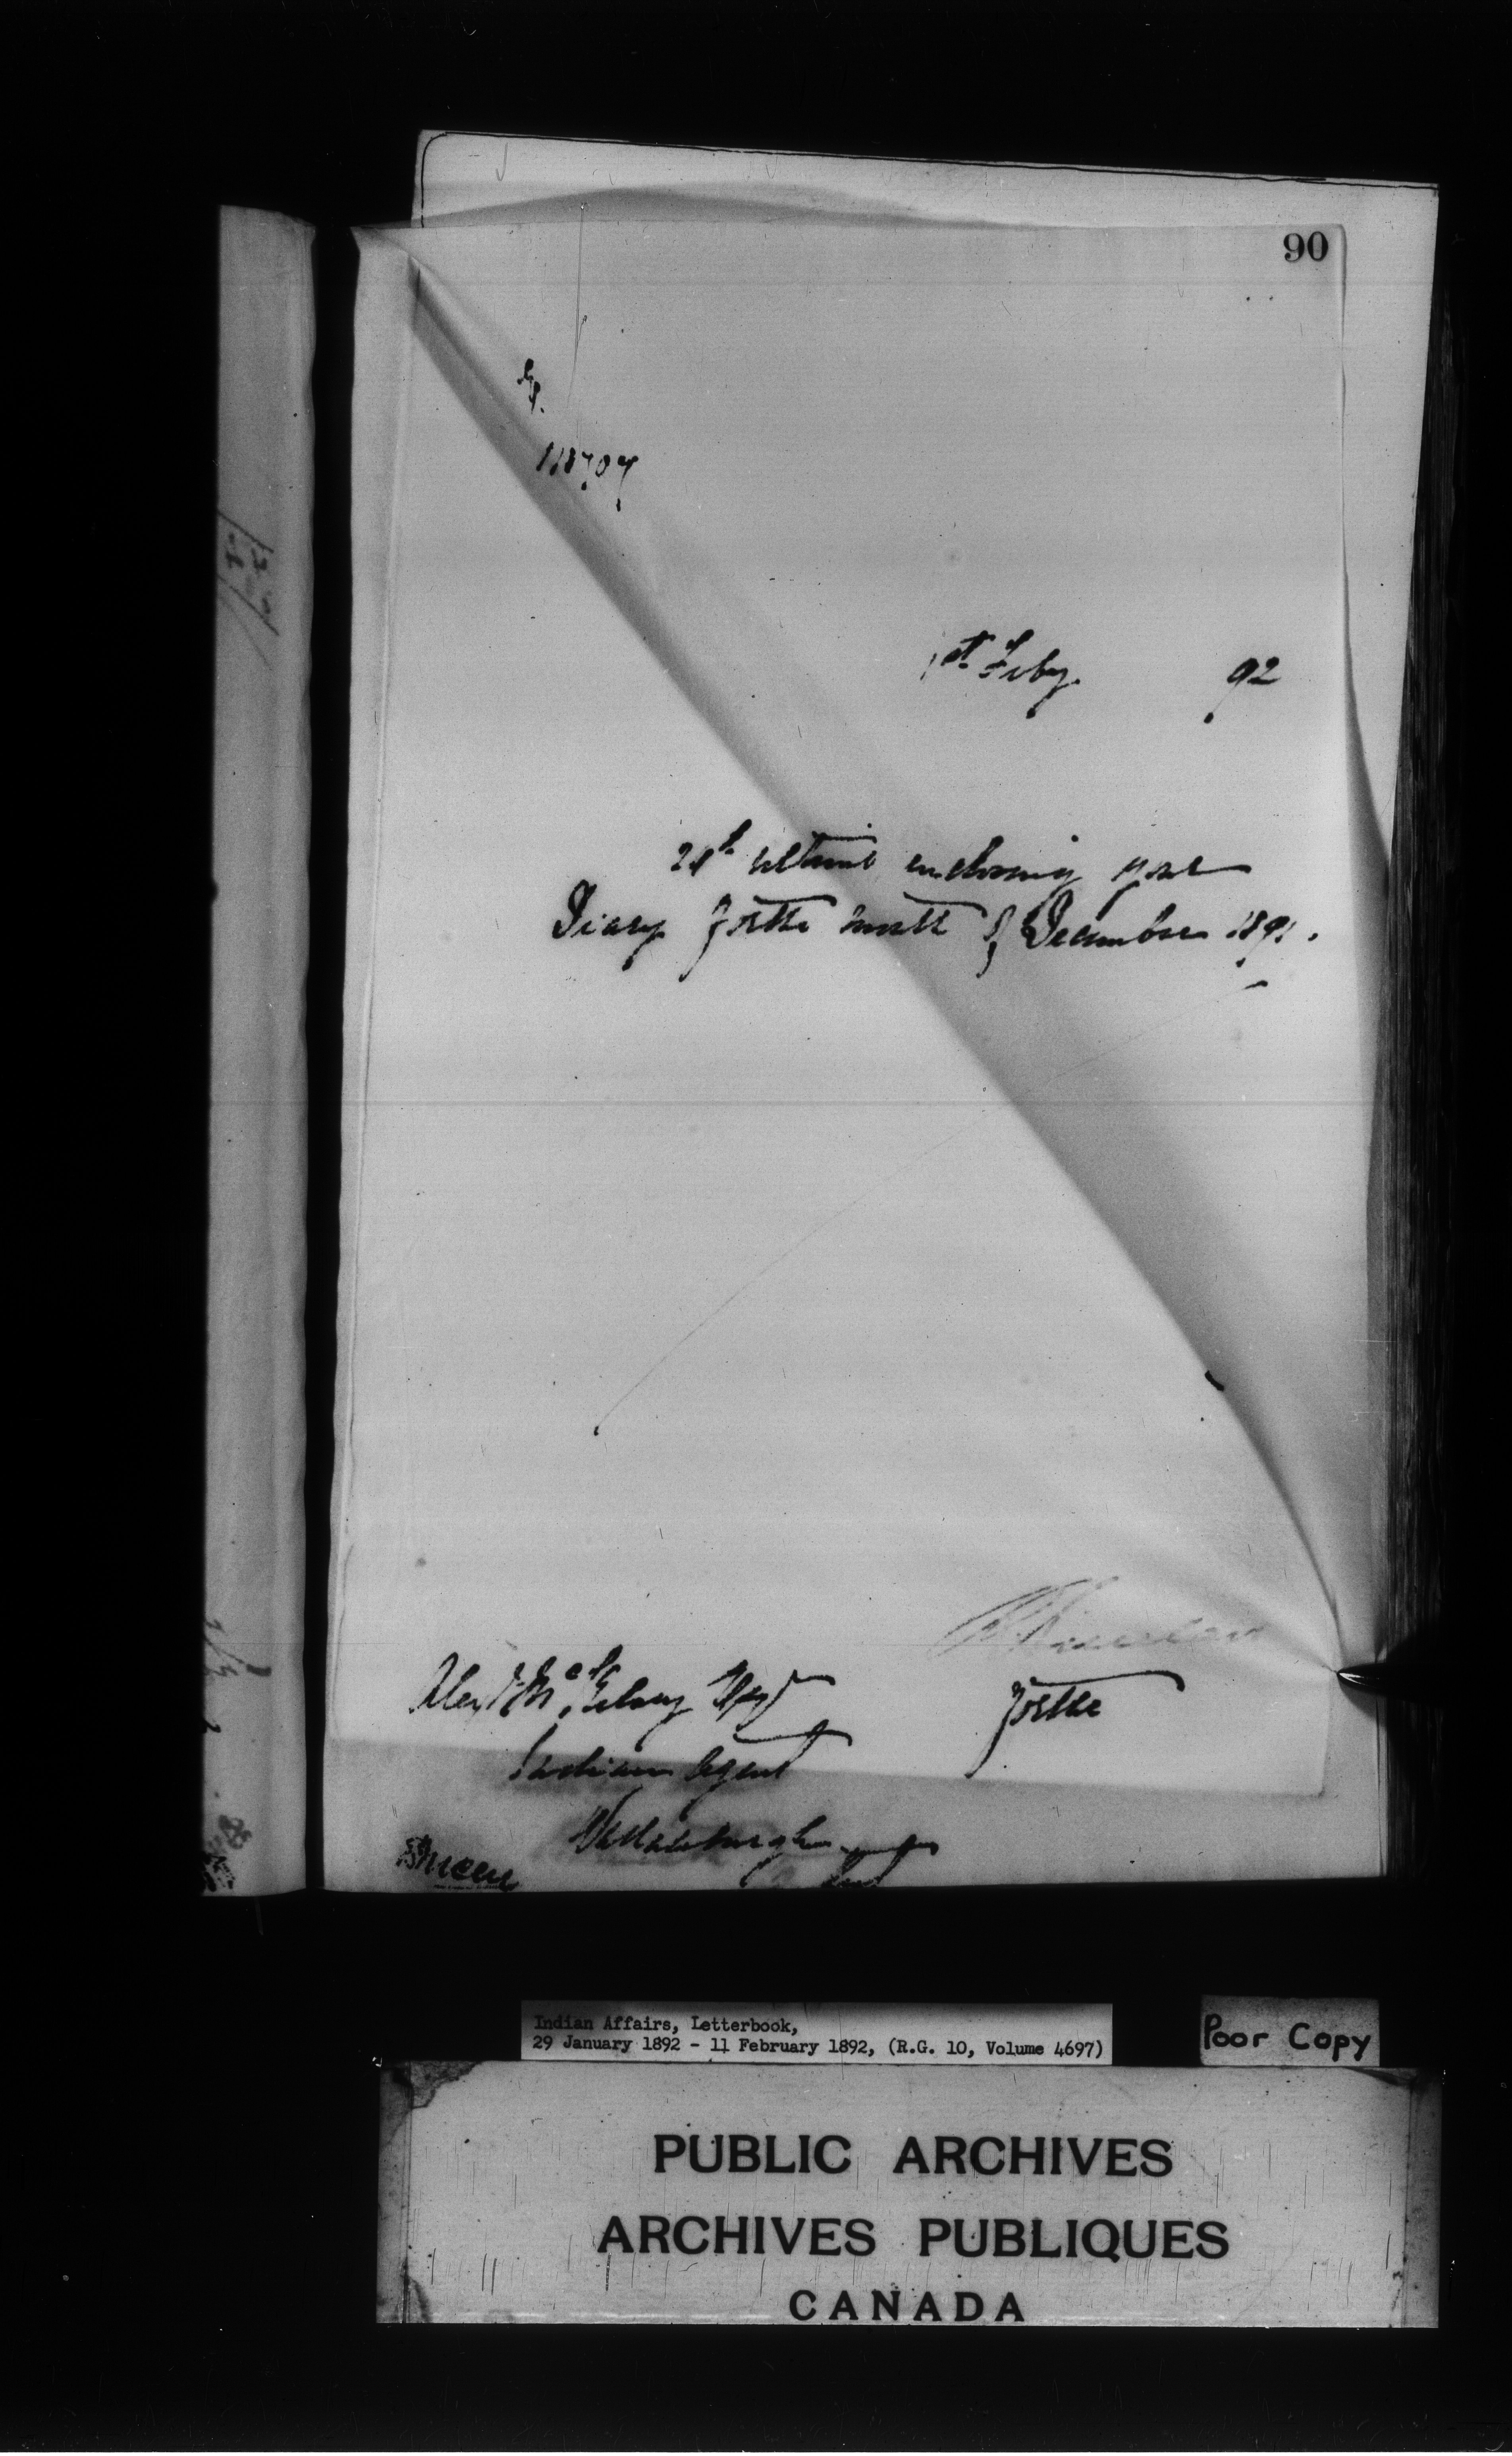 90
118707
1st Feby. 92
28th ultimo enclosing your
Diary for the month of December 1891.
Alexr McKelvey Esqr
for the
Indian Agent
Wallaceburgh
Ont
Indian Affairs, Letterbook,
29 January 1892 - 11 February 1892, (R.G. 10, Volume 4697)
Poor Copy
PUBLIC ARCHIVES
ARCHIVES PUBLIQUES
CANADA